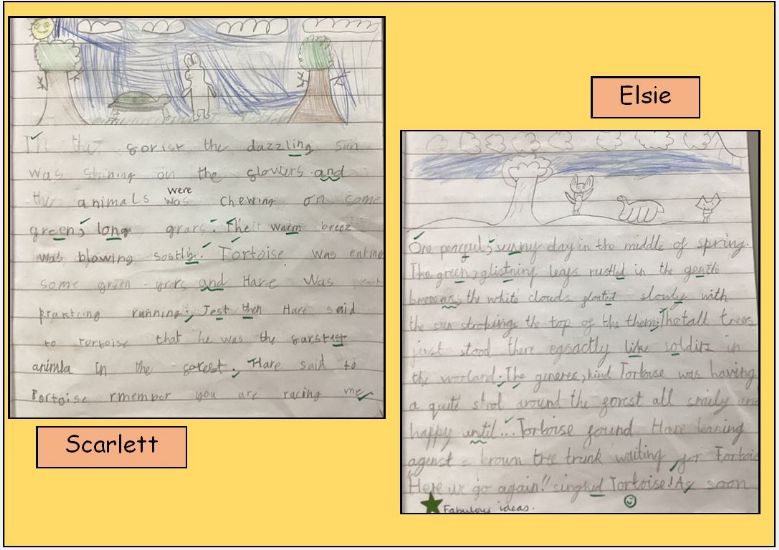 In the gorist the dazzling sun
was shining on the flowers and
the animals were was chewing on some
green, long grars. Their warm breez
was blowing softlb. Tortoise was eating
some green grars and Hare was
prantcing running. Jest then Hare said
to Tortoise that he was the farstest
animla in the forest. Hare said to
Tortoise rmember you are racing me
Scarlett
Elsie
One peaceful, sunny day in the middle of spring.
The green, glistning leafs rusteld in the gentle
the white clouds floated slowly with
the sun stroking the top of them. The tall trees
just stood there egsactly like soldirz in
the worland. The generes, kind Tortoise was having
a quite strol around the forest all smily and
happy until... Tortoise found Hare leaning
agenst a brown tree trunk waiting for Tortoise
"Here we go again!" singhed Tortoise! As soon
Fabulous ideas.